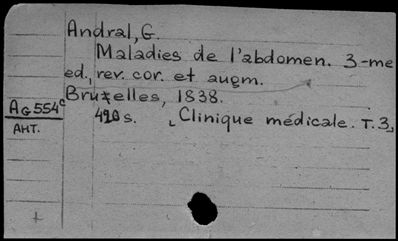 Andral, G.
Maladies de l'abdomen. 3-me
ed., rev. cor. et augm.
Bruxelles, 1838.
AG554c
Ант.
420 s. [Clinique médicale. T.3]